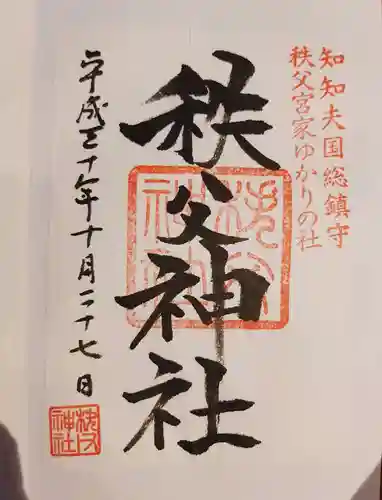 知知夫国総鎮守
秩父宮家ゆかりの社
秩父神社
平成三十年十月二十七日
秩父
神社